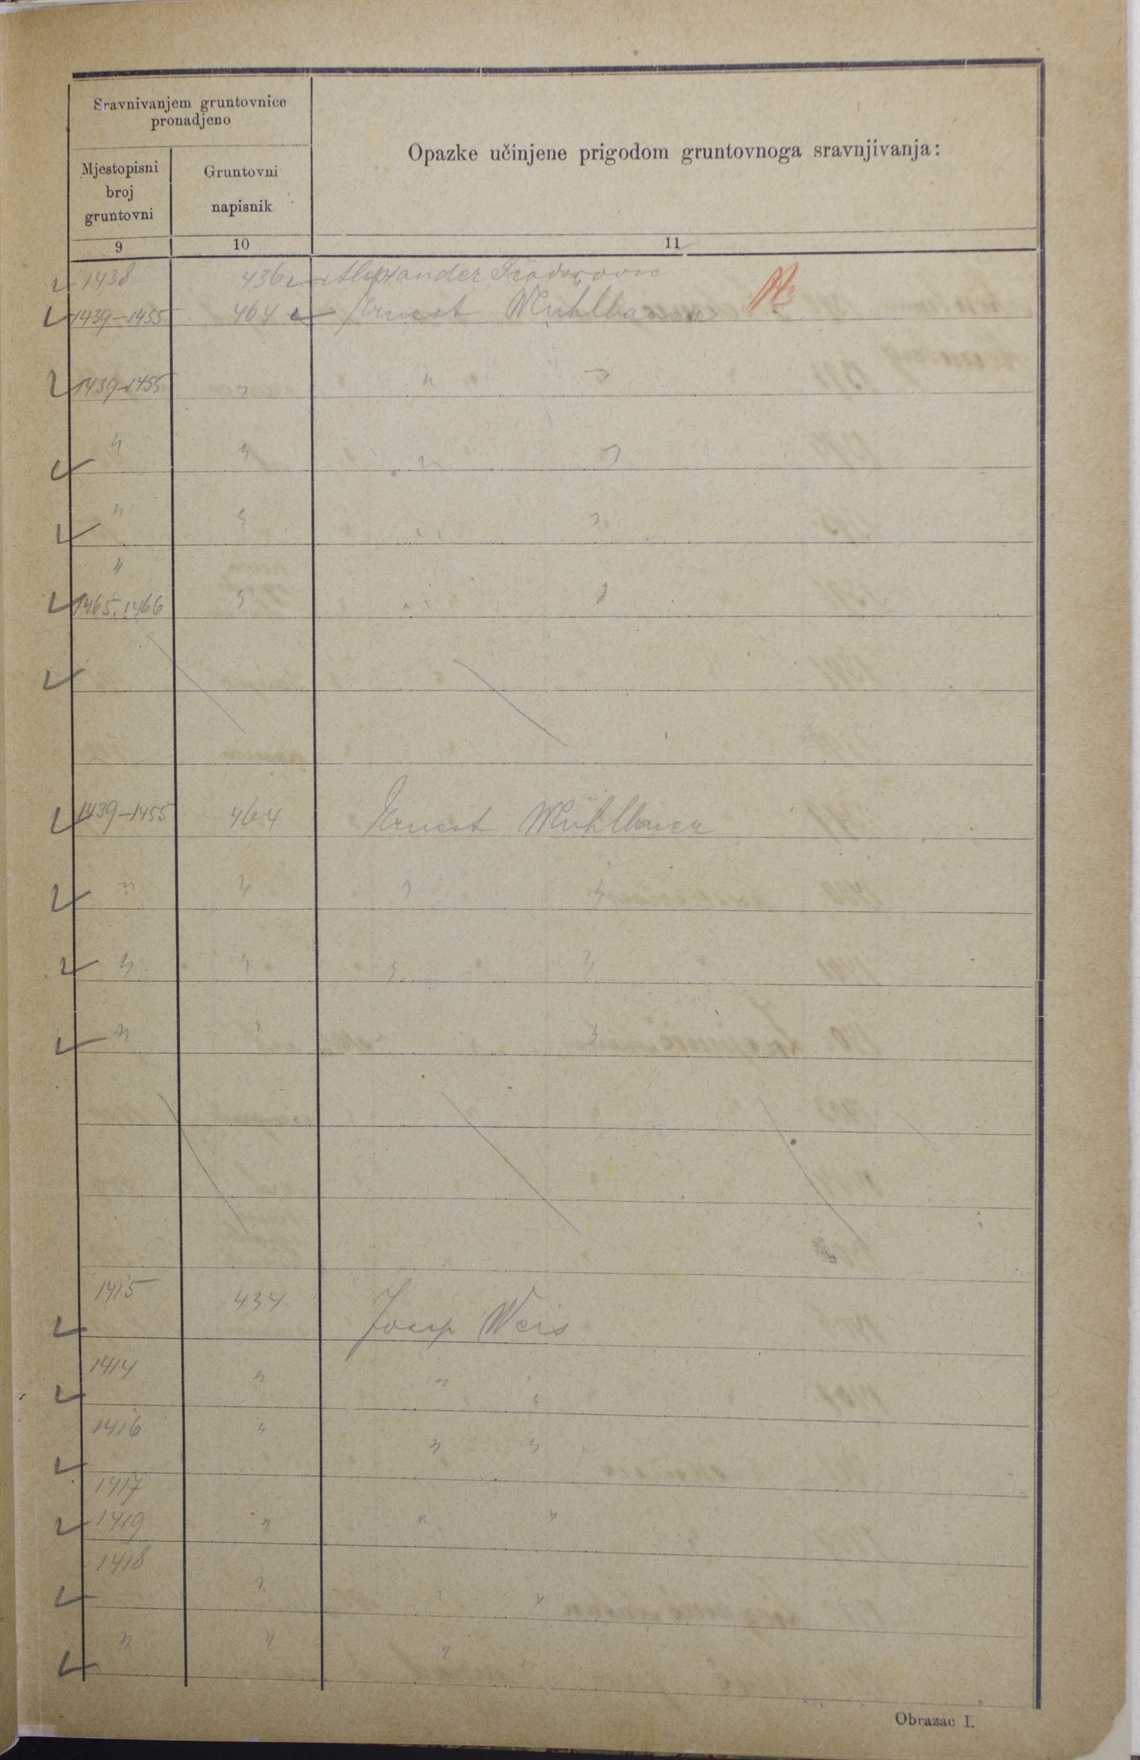 Sravnivanjem gruntovnice
pronadjeno
Opazke učinjene prigodom gruntovnoga sravnjivanja:
Mjestopisni
broj
gruntovni
Gruntovni
napisnik
9 10 11
1438 436 Alexander
1439–1455 464 Ernest Mühlbauer
1439–1455 " " "
" " " "
" " " "
"
1465, 1466 " " "
1439–1455 464 Ernest Mühlbauer
" " " "
" " " "
" " "
1415 434 Josip Weis
1414 " " "
1416 " " "
1417
1419 " " "
1418
" " "
" " "
Obrazac I.